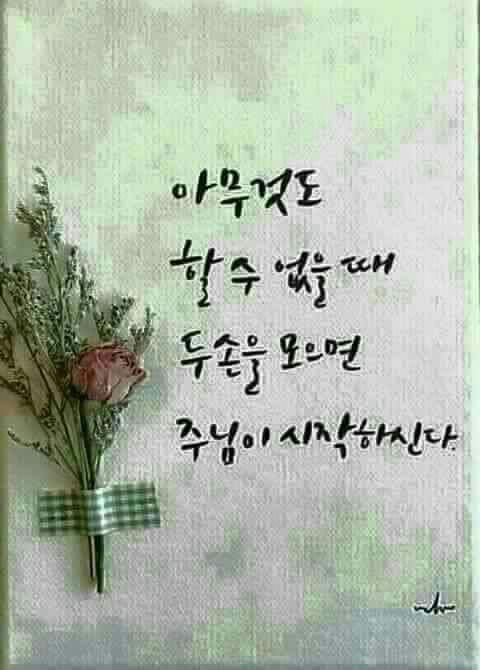 아무것도
할 수 없을 때
두 손을 모으면
주님이 시작하신다.